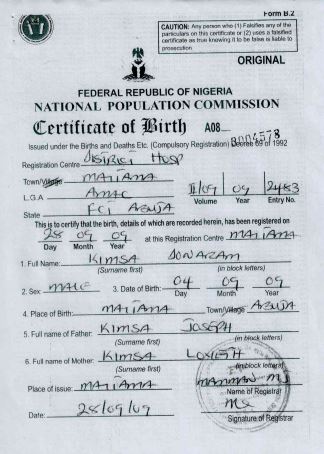 Form B.2
CAUTION: Any person who (1) Falsifies any of the
particulars on this certificate or (2) uses a falsified
certificate as true knowing it to be false is liable to
prosecution.
ORIGINAL
FEDERAL REPUBLIC OF NIGERIA
NATIONAL POPULATION COMMISSION
Certificate of Birth A08
Issued under the Births and Deaths Etc. (Compulsory Registration) Decree 69 of 1992
Registration Centre DISTRICT HOSP
Town/Village MAITAMA
L.G.A AMAC II/09 09 2483
Volume Year Entry No.
State FCT ABUJA
This is to certify that the birth, details of which are recorded herein, has been registered on
28 09 09 at this Registration Centre MAITAMA
Day Month Year
1. Full Name: KIMSA
(Surname first) (in block letters)
2. Sex: MALE 3. Date of Birth: 04 09 09
Day Month Year
4. Place of Birth: MAITAMA Town/Village ABUJA
5. Full name of Father: KIMSA JOSEPH
(Surname first) (in block letters)
6. Full name of Mother: KIMSA
(Surname first) (in block letters)
Place of issue: MAITAMA
Name of Registrar
Date: 28/09/09
Signature of Registrar